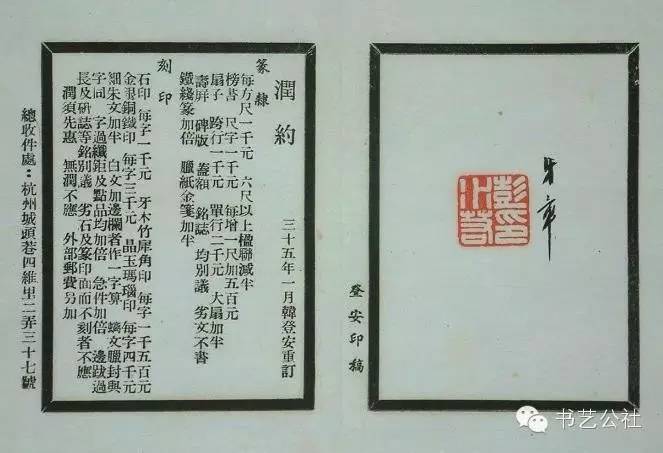 牙章
登安印稿
潤約
三十五年一月韓登安重訂
篆隸
每方尺一千元 六尺以上楹聯減半
榜書 尺字一千元 每增一尺加五百元
扇子 跨行一千元 單行二千元 大扇加半
壽屏 碑版 蓋額 銘誌 均別議 劣文不書
鐵綫篆加倍 臘紙金箋加半
刻印
石印 每字一千元 牙木竹犀角印 每字一千五百元
金銀銅鐵印 每字三千元 晶玉瑪瑙印 每字四千元
細朱文加半 白文加邊欄者作一字算 臘封與
字同 字過纖鉅及點品均加倍 急件加倍 邊跋過
長及研誌等銘別議 劣石及篆印面而不刻者不應
潤須先惠 無潤不應 外部郵費另加
總收件處：杭州城頭巷四維里二弄三十七號
书艺公社